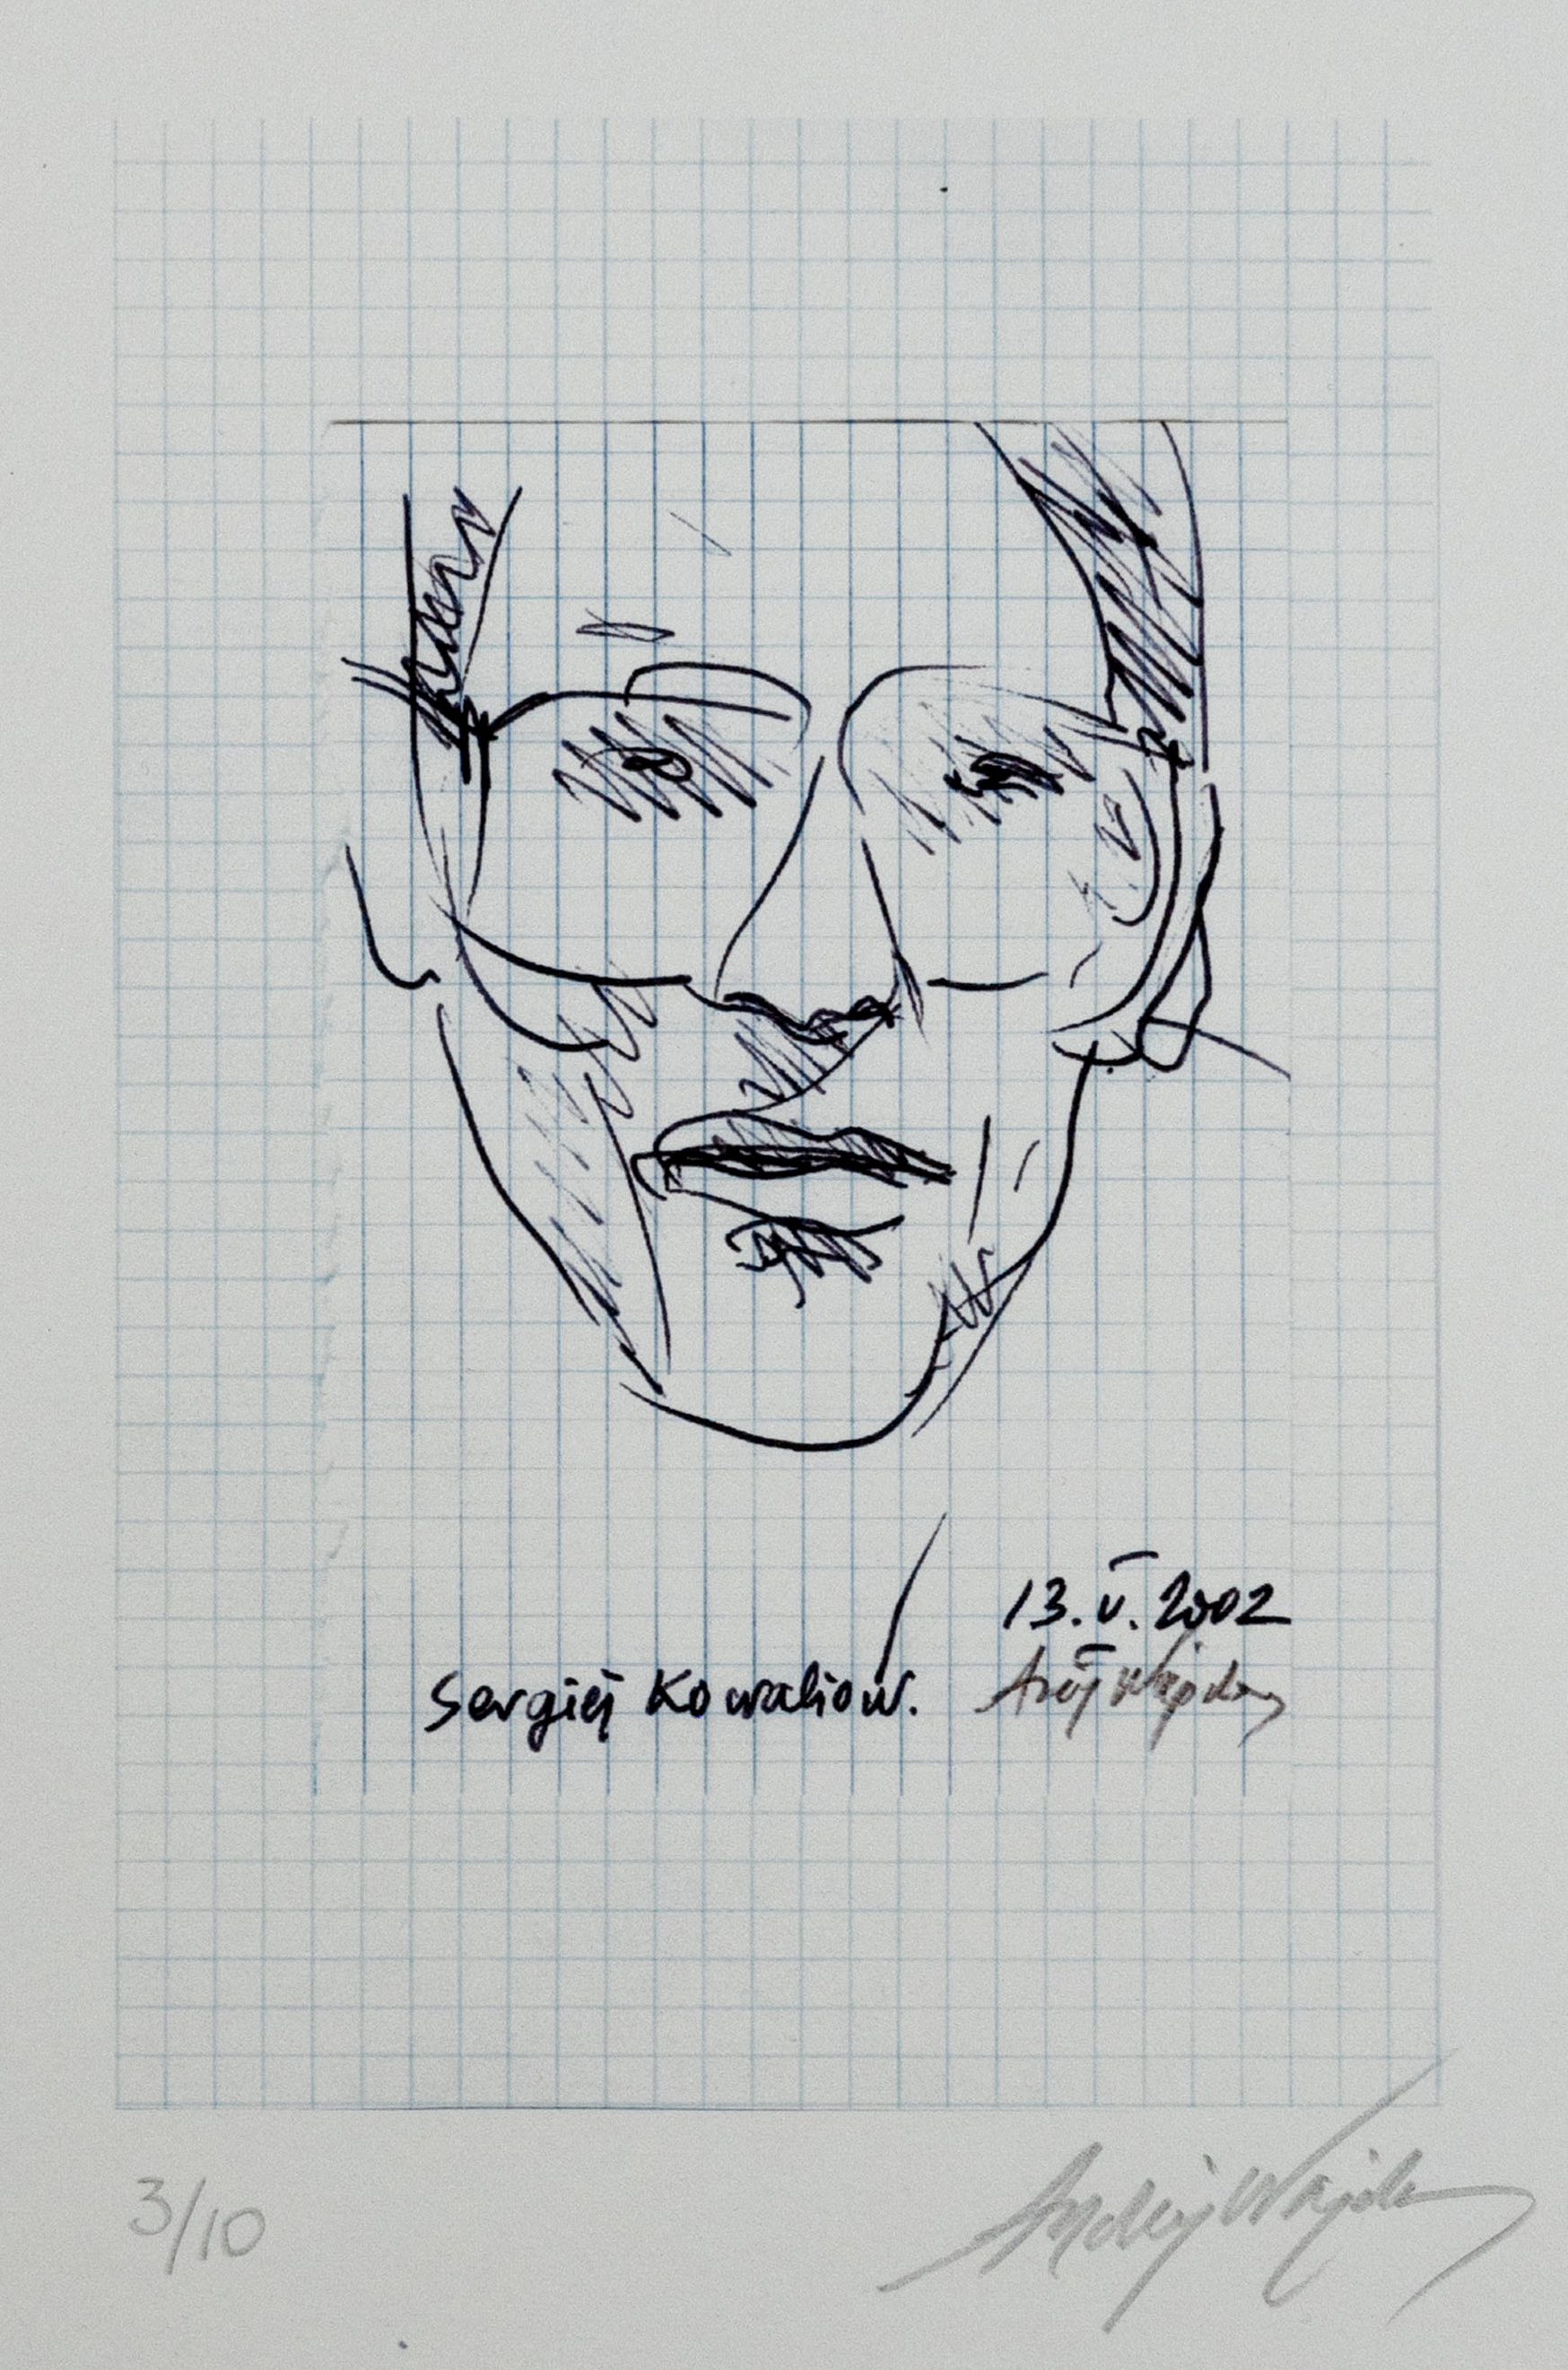 13.V.2002
Sergiej Kowaliow. Andrzej Wajda
3/10
Andrzej Wajda